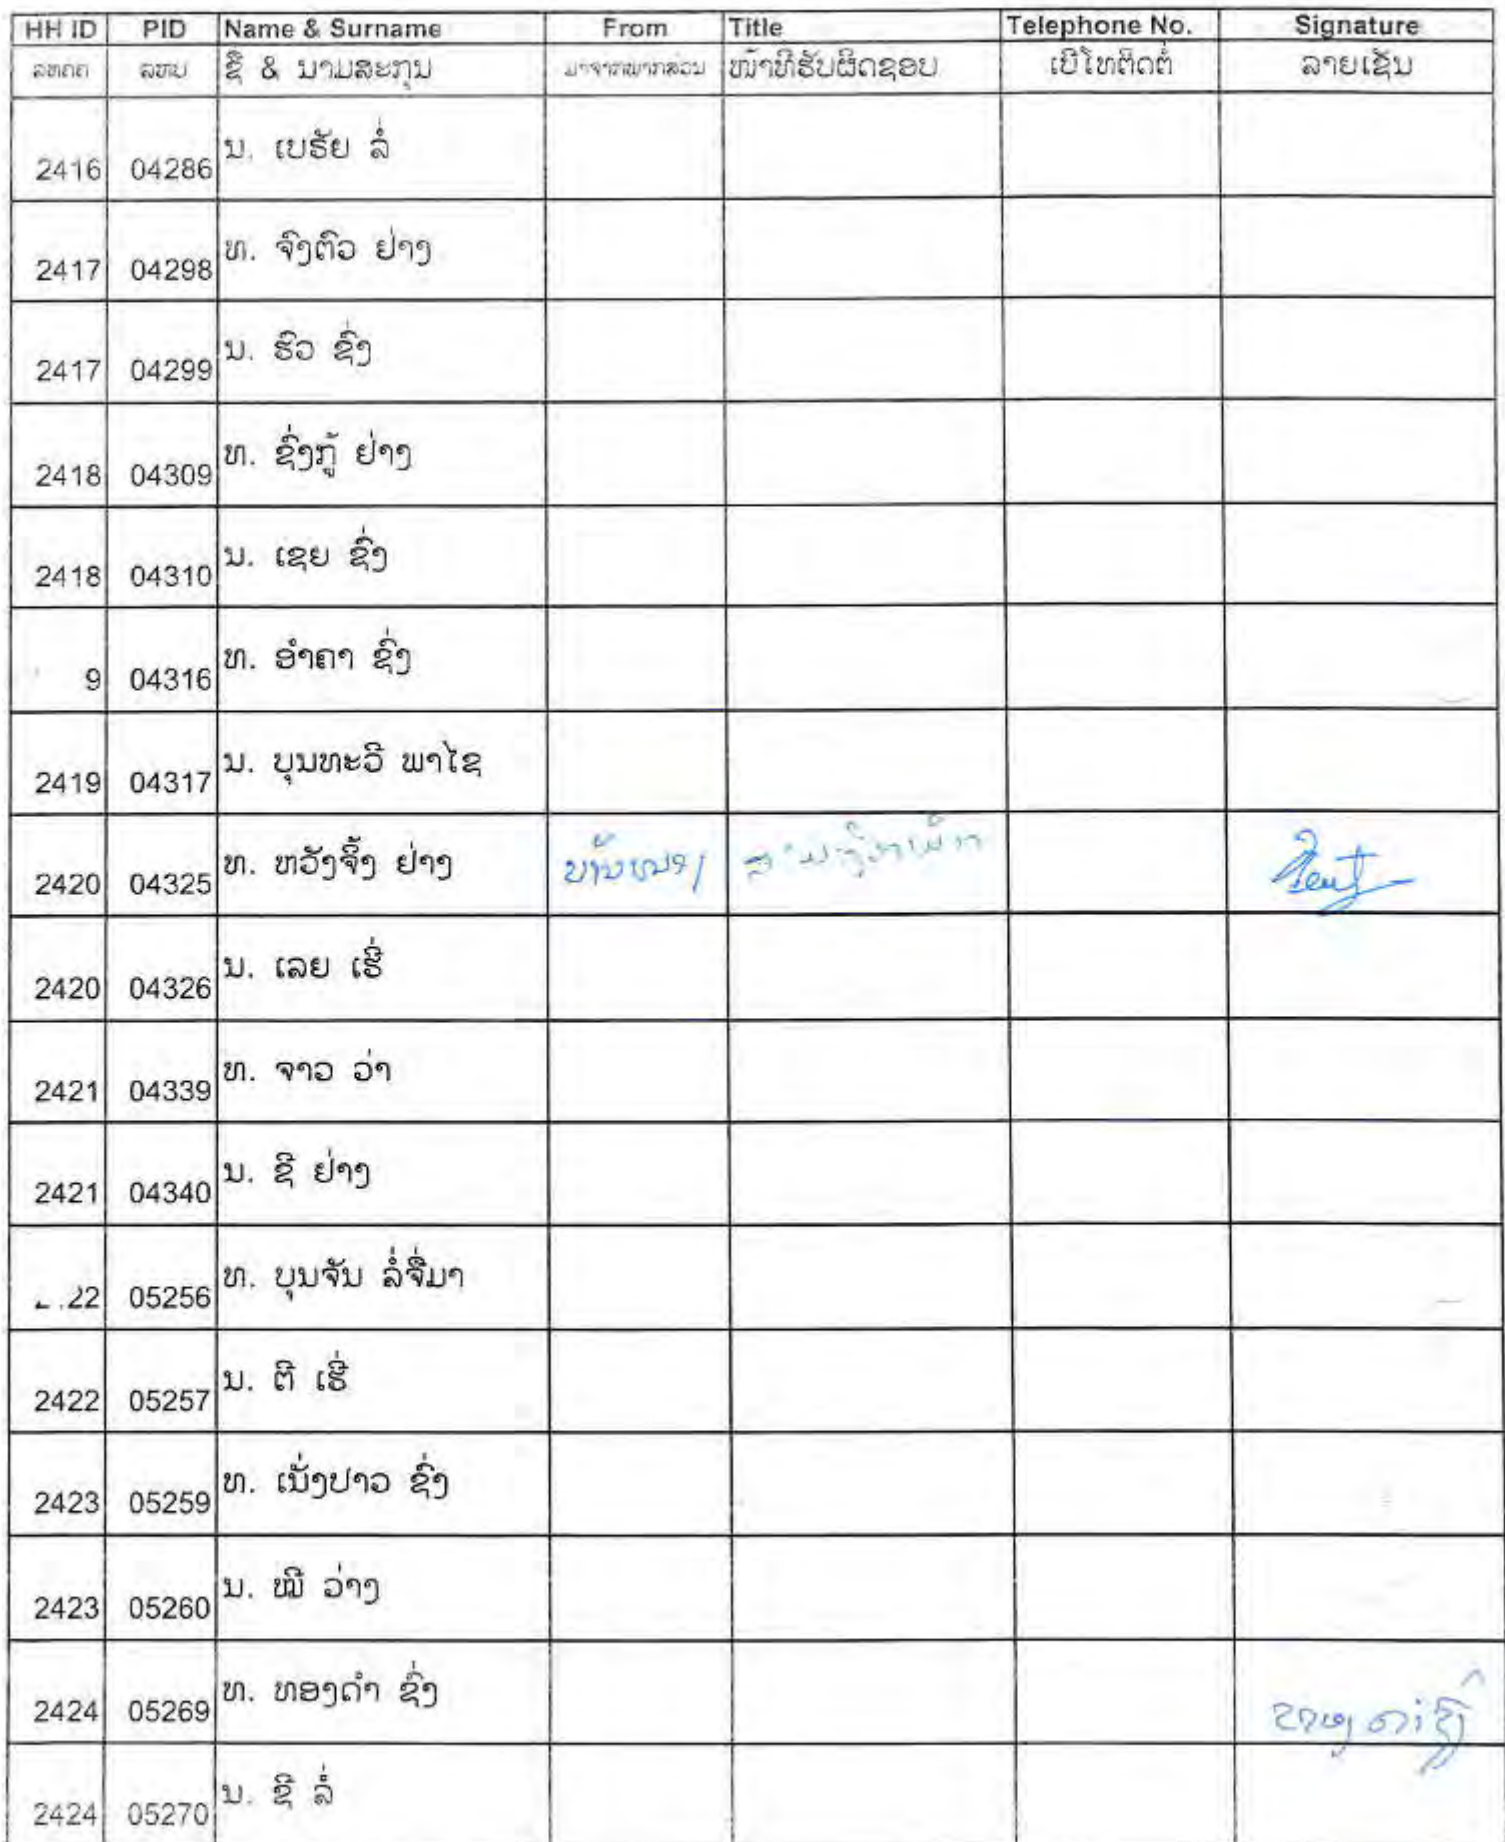 HH ID PID Name & Surname From Title Telephone No. Signature
ລຫຄຄ ລຫບ ຊື່ & ນາມສະກຸນ ມາຈາກພາກສ່ວນ ໜ້າທີ່ຮັບຜິດຊອບ ເບີໂທຕິດຕໍ່ ລາຍເຊັນ
2416 04286 ນ. ເບຣັຍ ລໍ່
2417 04298 ທ. ຈົງຕົວ ຢ່າງ
2417 04299 ນ. ຮົວ ຊົ່ງ
2418 04309 ທ. ຊົ່ງກູ້ ຢ່າງ
2418 04310 ນ. ເຊຍ ຊົ່ງ
9 04316 ທ. ອຳຄາ ຊົ່ງ
2419 04317 ນ. ບຸນທະວີ ພາໄຊ
2420 04325 ທ. ຫວັງຈຶ້ງ ຢ່າງ
2420 04326 ນ. ເລຍ ເຮີ່
2421 04339 ທ. ຈາວ ວ່າ
2421 04340 ນ. ຊີ ຢ່າງ
22 05256 ທ. ບຸນຈັນ ລໍ່ຈື່ມາ
2422 05257 ນ. ຕີ ເຮີ່
2423 05259 ທ. ເນັ່ງປາວ ຊົ່ງ
2423 05260 ນ. ໝີ ວ່າງ
2424 05269 ທ. ທອງດຳ ຊົ່ງ
2424 05270 ນ. ຊີ ລໍ່